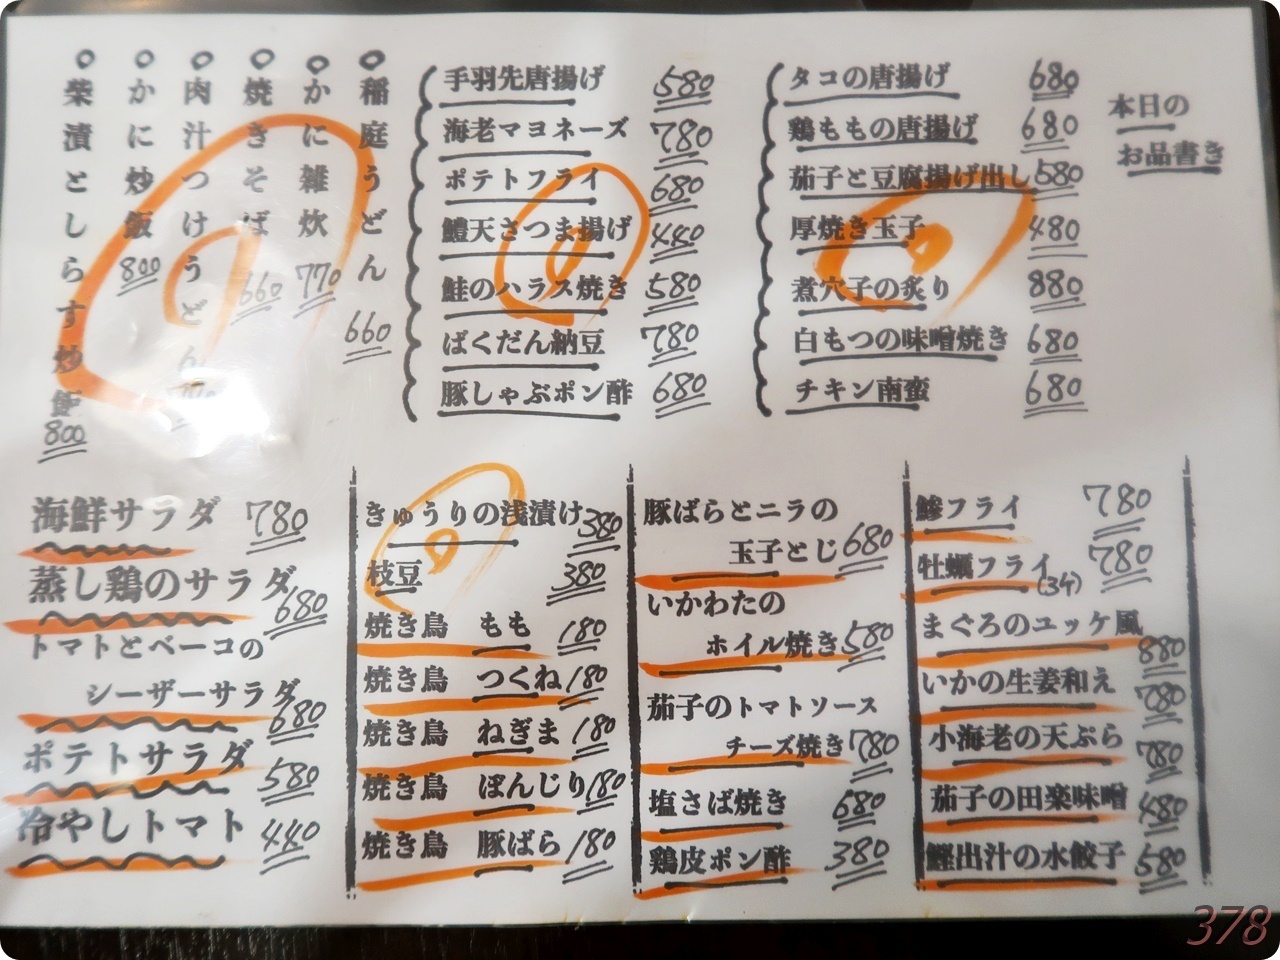 本日の
お品書き
タコの唐揚げ 680
鶏ももの唐揚げ 680
茄子と豆腐揚げ出し 580
厚焼き玉子 480
煮穴子の炙り 880
白もつの味噌焼き 680
チキン南蛮 680
手羽先唐揚げ 580
海老マヨネーズ 780
ポテトフライ 680
鱧天さつま揚げ 440
鮭のハラス焼き 580
ばくだん納豆 780
豚しゃぶポン酢 680
稲庭うどん 660
かに雑炊 770
焼きそば 660
肉汁つけうどん
かに炒飯 800
柴漬としらす炒飯 800
鯵フライ 780
牡蠣フライ(3ケ) 780
まぐろのユッケ風 880
いかの生姜和え 780
小海老の天ぷら 780
茄子の田楽味噌 480
鰹出汁の水餃子 580
豚ばらとニラの
玉子とじ 680
いかわたの
ホイル焼き 580
茄子のトマトソース
チーズ焼き 780
塩さば焼き 680
鶏皮ポン酢 380
きゅうりの浅漬け 380
枝豆 380
焼き鳥 もも 180
焼き鳥 つくね 180
焼き鳥 ねぎま 180
焼き鳥 ぼんじり 180
焼き鳥 豚ばら 180
海鮮サラダ 780
蒸し鶏のサラダ 680
トマトとベーコの
シーザーサラダ 680
ポテトサラダ 580
冷やしトマト 440
378